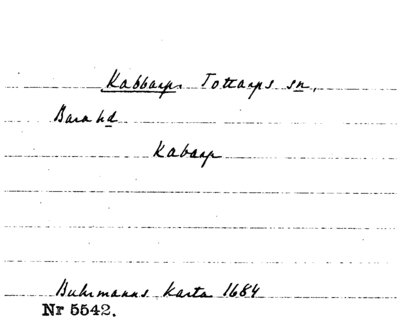 Kabbarp. Tottarps sn,
Bara hd
Kabarp
Buhrmanns Karta 1684
Nr 5542.